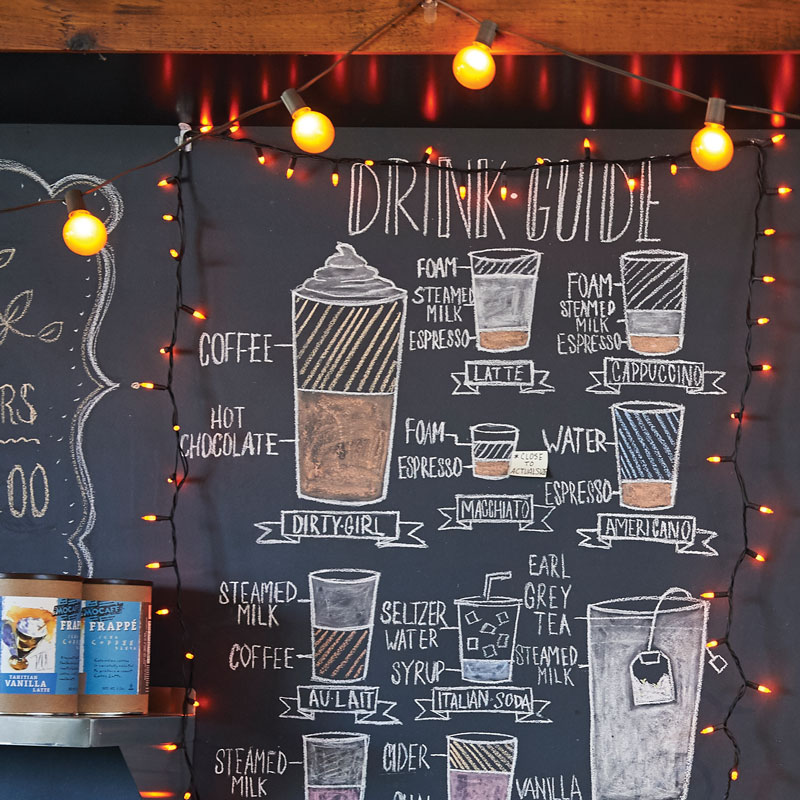 DRINK·GUIDE
COFFEE
HOT
CHOCOLATE
DIRTY·GIRL
FOAM
STEAMED
MILK
ESPRESSO
LATTE
FOAM
STEAMED
MILK
ESPRESSO
CAPPUCCINO
FOAM
ESPRESSO
* CLOSE
TO
MACCHIATO
WATER
ESPRESSO
AMERICANO
STEAMED
MILK
COFFEE
AU·LAIT
SELTZER
WATER
SYRUP
ITALIAN·SODA
EARL
GREY
TEA
STEAMED
MILK
STEAMED
MILK
CIDER
VANILLA
RS
00
MOCAFE
FRAP
TAHITIAN
VANILLA
LATTE
MOCAFE
FRAPPÉ
JAVA